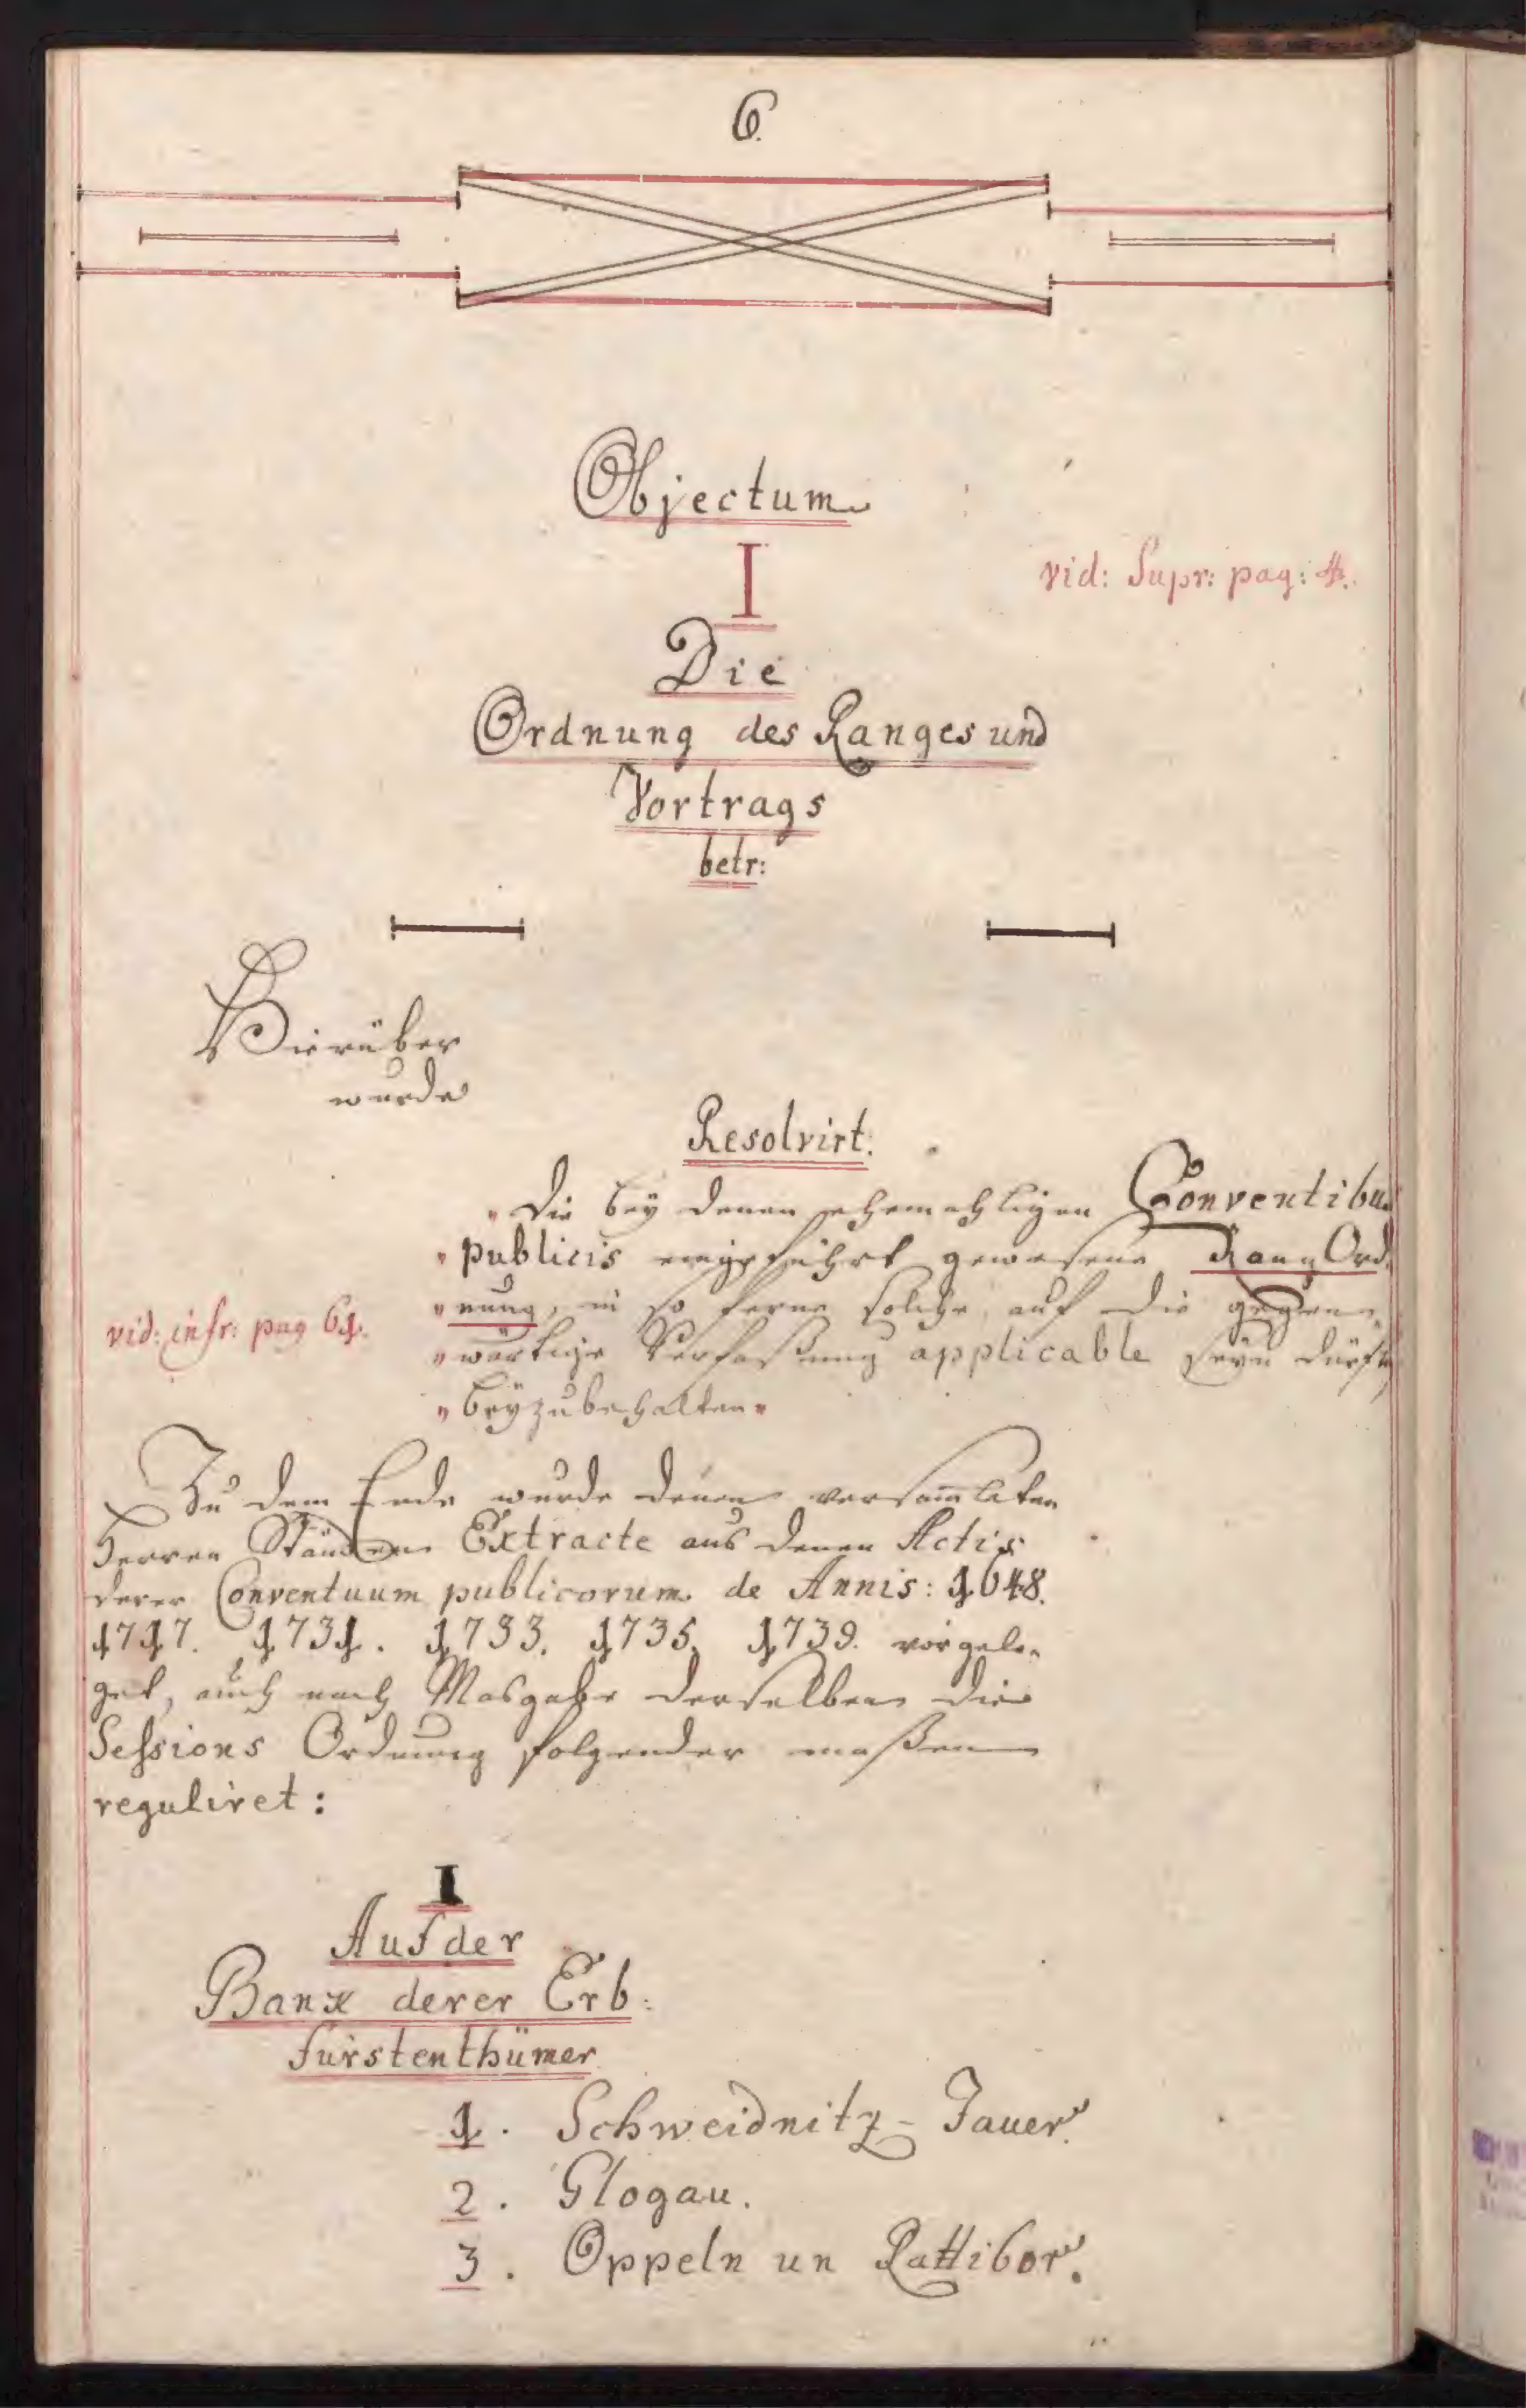 6.
Objectum
I
vid: Supr: pag: 4.
Die
Ordnung des Ranges und
Vortrags
betr:
Hierüber
wurde
Resolvirt.
„Die bey denen ehemahligen Conventibus
„publicis eingeführt gewesene Rang Ord-
„nung, in so ferne solche auf die gegen-
vid: infr: pag 61.
„wärtige Verfaßung applicable seyn dürfte,
„beyzubehalten„
Zu dem Ende wurde denen versammleten
Herren Ständen Extracte aus denen Actis
derer Conventuum publicorum de Annis: 1648.
1717. 1731. 1733. 1735. 1739. vorgele-
get, auch nach Masgabe derselben die
Sessions Ordnung folgender maßen
reguliret:
I
Auf der
Bank derer Erb-
fürstenthümer
1. Schweidnitz-Jauer.
2. Glogau.
3. Oppeln un Rattibor.